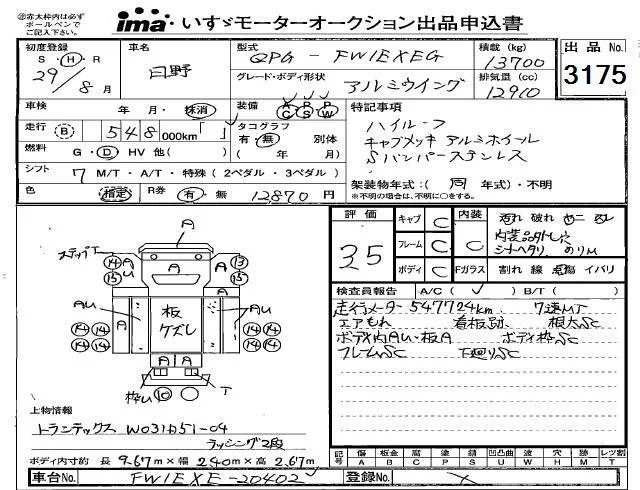 ㊟赤太枠内は必ず
ボールペンで
ご記入下さい。
ima いすゞモーターオークション出品申込書
初度登録 S・H・R 29年 8月
車名 日野
型式 QPG-FW1EXEG
積載 (kg) 13700
出品No. 3175
グレード・ボディ形状 アルミウイング
排気量 (cc) 12910
車検 年 月・抹消
装備 A/C P/S P/W
特記事項
走行 B 548,000km
タコグラフ 有・無 別体 ( 年 月)
ハイルーフ
キャブメッキ アルミホイール
Sバンパーステンレス
燃料 G・D HV 他( )
シフト 7 M/T・A/T・特殊 (2ペダル・3ペダル)
架装物年式:( 同 年式)・不明
※不明の場合は、不明に○をする。
色 指定 R券 有・無 12870円
評価 35
キャブ C
フレーム C
ボディ C
内装 C
Fガラス 割れ 線 点傷 イバリ
内装品外し穴
シートヘタリ
検査員報告 A/C( ) B/T( )
走行メーター547724km 7速MT
エアもれ 看板跡 根太SC
ボディ内AU・板A ボディ枠SC
フレームSC 下廻りSC
ステップT
A
板
ケズレ
AU
枠U
T
上物情報
トランテックス W031D51-04
ラッシング2段
ボディ内寸約 長 9.67m×幅 2.40m×高 2.67m
記号 傷 A 板金 B 腐 C 塗 P 錆 S 凹凸曲 U 波 W 穴 H 無 M レツ割 T
車台No. FW1EXE-20402
登録No.